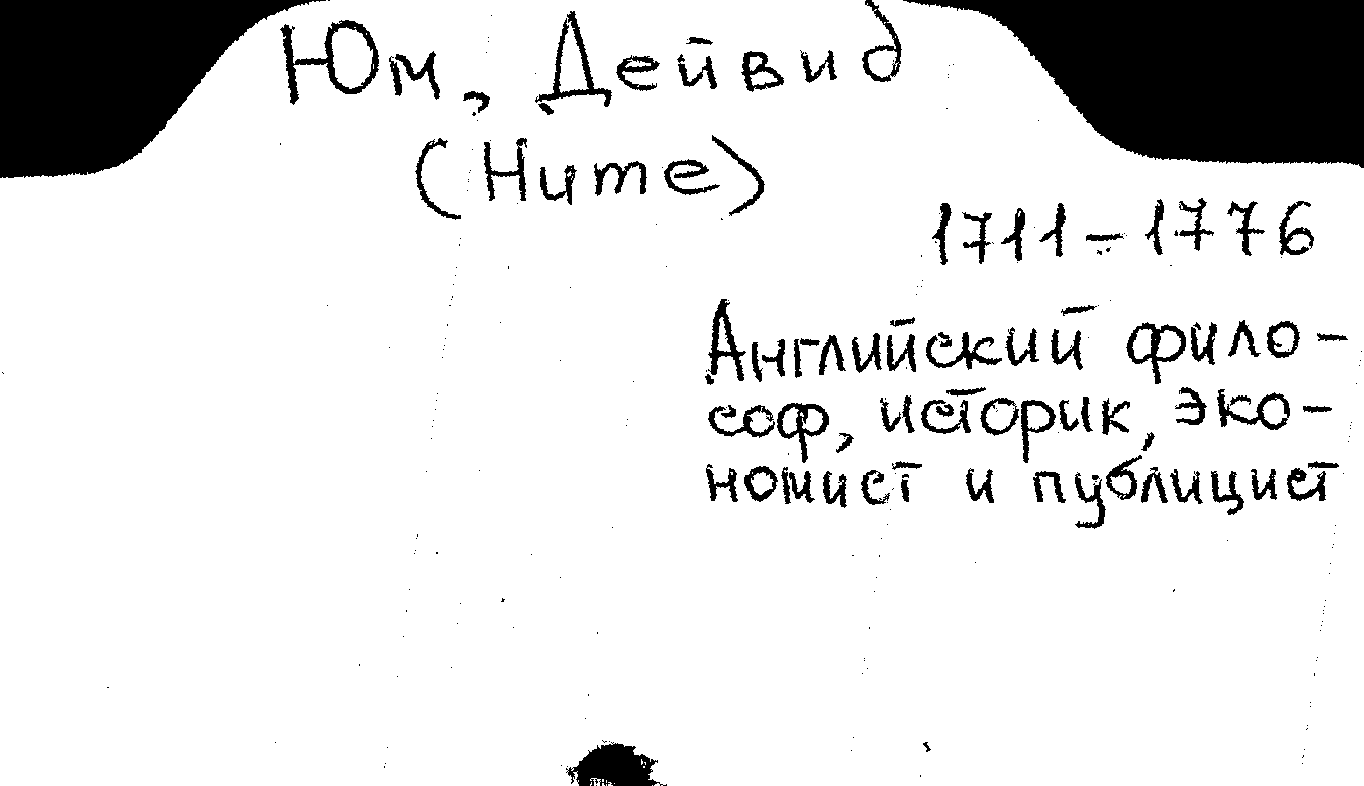 Юм, Дейвид
(Hume)
1711-1776
Английский фило-
соф, историк, эко-
номист и публицист